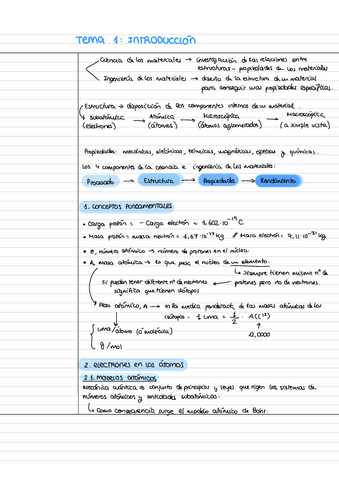 TEMA 1: INTRODUCCIÓN
Ciencia de los materiales → investigación de las relaciones entre
estructuras - propiedades de los materiales
Ingeniería de los materiales → diseño de la estructura de un material
para conseguir unas propiedades específicas.
Estructura → disposición de los componentes internos de un material.
Subatómica → Atómica → Microscópica → Macroscópica
(electrones) (átomos) (átomos aglomerados) (a simple vista)
Propiedades: mecánicas, eléctricas, térmicas, magnéticas, ópticas y químicas.
Los 4 componentes de la ciencia e ingeniería de los materiales:
Procesado → Estructura → Propiedades → Rendimiento
1. CONCEPTOS FUNDAMENTALES
• Carga protón = - Carga electrón = 1,602·10⁻¹⁹ C
• Masa protón = masa neutrón = 1,67·10⁻²⁷ kg // Masa electrón = 9,11·10⁻³¹ kg
• Z, número atómico → número de protones en el núcleo.
• A, masa atómica → lo que pesa el núcleo de un elemento.
↳ siempre tienen mismo nº de
protones pero no de neutrones.
Si pueden tener diferente nº de neutrones
significa que tienen isótopos
Peso atómico, A → es la media ponderada de las masas atómicas de los
isótopos. 1 uma = 1/2 · A(C¹²)
12,0000
uma/átomo (o molécula)
g/mol
2. ELECTRONES EN LOS ÁTOMOS
2.1. MODELOS ATÓMICOS
Mecánica cuántica es conjunto de principios y leyes que rigen los sistemas de
números atómicos y entidades subatómicas.
↳ Como consecuencia surge el modelo atómico de Bohr.